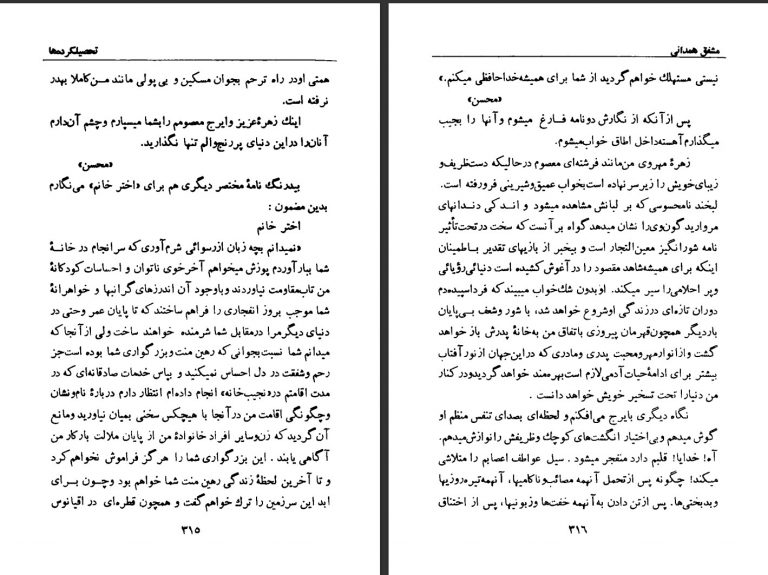 تحصیلکرده‌ها
همتی اودر راه ترحم بجوان مسکین و بی‌پولی مانند مـن‌کاملا بهدر
نرفته است.
اینك زهرهٔ‌عزیز وایرج معصومم رابشما میسپارم وچشم آن‌دارم
آنان‌را دراین دنیای پررنج‌والم تنها نگذارید.
«محسن»
بیدرنگ نامهٔ مختصر دیگری هم برای «اختر خانم» می‌نگارم
بدین مضمون :
اختر خانم
«نمیدانم بچه زبان ازرسوائی شرم‌آوری که سرانجام در خانـهٔ
شما ببارآوردم پوزش میخواهم آخرخوی ناتوان و احساسات کودکانهٔ
من تاب‌مقاومت نیاوردند وباوجود آن اندرزهای گرانبها و خواهرانهٔ
شما موجب بروز انفجاری را فراهم ساختند که تا پایان عمر وحتی در
دنیای دیگرمرا درمقابل شما شرمنده خواهند ساخت ولی از آنجا که
میدانم شما نسبت‌بجوانی که رهین منت وبزرگواری شما بوده است‌جز
رحم وشفقت در دل احساس نمیکنید و بپاس خدمات صادقانه‌ای که در
مدت اقامتم در«نجیب‌خانه» انجام داده‌ام انتظار دارم دربارهٔ نام‌ونشان
وچگونگی اقامت من درآنجا با هیچکس سخنی بمیان نیاورید ومانع
آن گردید که زن‌وسایر افراد خانوادهٔ من از پایان ملالت بارکار من
آگاهی یابند . این بزرگواری شما را هرگز فراموش نخواهم کرد
و تا آخرین لحظهٔ زندگی رهین منت شما خواهم بود وچـون بـرای
ابد این سرزمین را ترك خواهم‌گفت و همچون قطره‌ای در اقیانوس
۳۱۵
مشفق همدانی
نیستی مستهلك خواهم‌گردید از شما برای همیشه‌خداحافظی میکنم.»
«محسن»
پس ازآنکه از نگارش دونامه فـارغ میشوم وآنها را بجیب
میگذارم آهسته‌داخل اطاق خواب‌میشوم.
زهرهٔ مهروی من‌مانند فرشته‌ای معصوم درحالیکه دست‌ظریف‌و
زیبای‌خویش را زیرسرنهاده است‌بخواب عمیق‌وشیرینی فرورفته است.
لبخند نامحسوسی که بر لبانش مشاهده میشود و انـدکی دنـدانهای
مرواریدگون‌وی‌را نشان میدهدگواه بر آنست که سخت درتحت‌تأثیر
نامه شورانگیز معین‌التجار است و بیخبر از بازیهای تقدیر باطمینان
اینکه برای همیشه‌شاهد مقصود را درآغوش کشیده است دنیائی‌رؤیائی
وپر احلامی‌را سیر میکند. اوبدون شك‌خواب میبیند که فرداسپیده‌دم
دوران تازه‌ای درزندگی اوشروع خواهد شد، با شور وشعف بـی‌پایان
باردیگر همچون‌قهرمان پیروزی باتفاق من به‌خانهٔ پدرش باز خواهد
گشت وازانوارمهرومحبت پدری ومادری که دراین‌جهان ازنورآفتاب
بیشتر برای ادامهٔ‌حیات آدمی‌لازم است‌بهره‌مند خواهد گردیدودرکنار
من دنیارا تحت تسخیر خویش خواهد دانست .
نگاه دیگری بایرج می‌افکنم و لحظه‌ای بصدای تنفس منظم او
گوش میدهم وبی‌اختیار انگشت‌های کوچك وظریفش رانوازش‌میدهم.
آه! خدایا! قلبم دارد منفجر میشود . سیل عواطف اعصابم را متلاشی
میکند! چگونه پس ازتحمل آنهمه مصائب‌وناکامیها، آنهمه‌تیره‌روزیها
وبدبختی‌ها. پس ازتن دادن به آنهمه خفت‌ها وزبونیها، پس از اختناق
۳۱۶